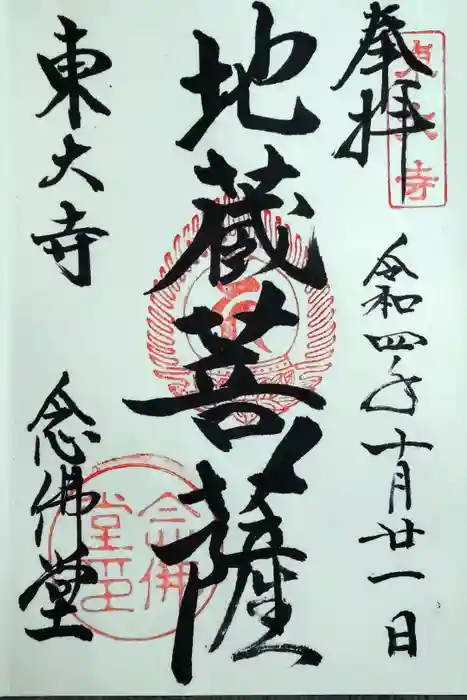 奉拝
東大寺
令和四年十月廿一日
地蔵菩薩
東大寺
念佛堂
念佛堂印